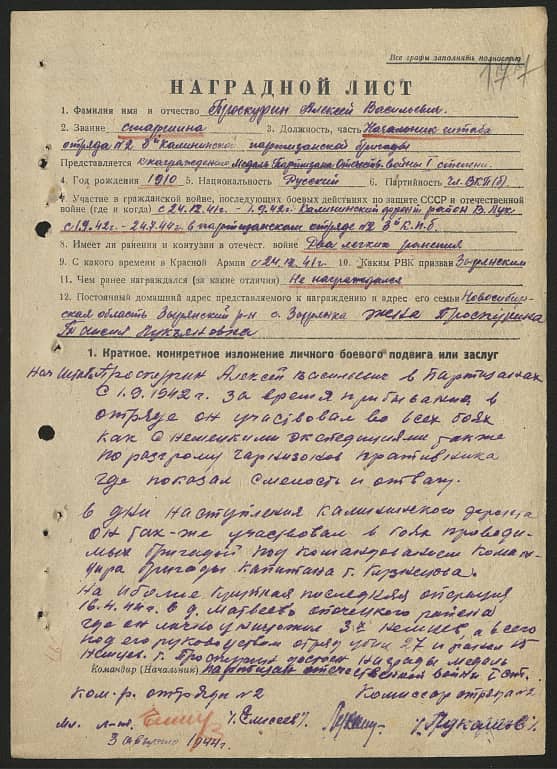 Все графы заполнять полностью
177
НАГРАДНОЙ ЛИСТ
1. Фамилия имя и отчество Проскурин Алексей Васильевич.
2. Звание старшина 3. Должность, часть Начальник штаба
отряда №2 8й Калининской партизанской бригады
Представляется к награждению Медаль "Партизана Отечеств. войны" I степени.
4. Год рождения 1910 5. Национальность Русский 6. Партийность Чл. ВКП(б)
4. Участие в гражданской войне, последующих боевых действиях по защите СССР и отечественной
войне (где и когда) с 24.12.41г. - 1.9.42г. Калининский фронт район В. Лук
с 1.9.42г - 24.7.44г в партизанском отряде №2 8й К.п.б.
8. Имеет ли ранения и контузии в отечест. войне Два легких ранения
9. С какого времени в Красной Армии с 24.12.41г. 10. Каким РВК призван Зырянским
11. Чем ранее награждался (за какие отличия) Не награждался
12. Постоянный домашний адрес представляемого к награждению и адрес его семьи Новосибир-
ская область Зырянский р-н с. Зырянка жена Проскурина
Таисия Лукьяновна
1. Краткое, конкретное изложение личного боевого подвига или заслуг
Нач штаба Проскурин Алексей Васильевич в партизанах
с 1.9.1942 г. За время прибывания в
отряде он участвовал во всех боях
как с немецкими экспедициями, также
по разгрому гарнизонов пративника
где показал смелость и отвагу.
В дни наступления калининского фронта
он так-же участвовал в боях проводи-
мых бригадой под командованием коман-
дира бригады капитана т. Кузнецова.
На иболие крупная последняя операция
16.4.44г. в д. Матвеево опочецкого района
где он лично уничтожил 3х немцев, а всего
под его руководством отряд убил 27 и ранил 15
немцев. т. Проскурин достоен награды медаль
Командир (Начальник) партизан отечественной войны I ст.
ком-р. отряда №2 Комиссар отряда №2
мл. л-т. /Елисеев/. /Лукашов/.
3 августа 1944г.